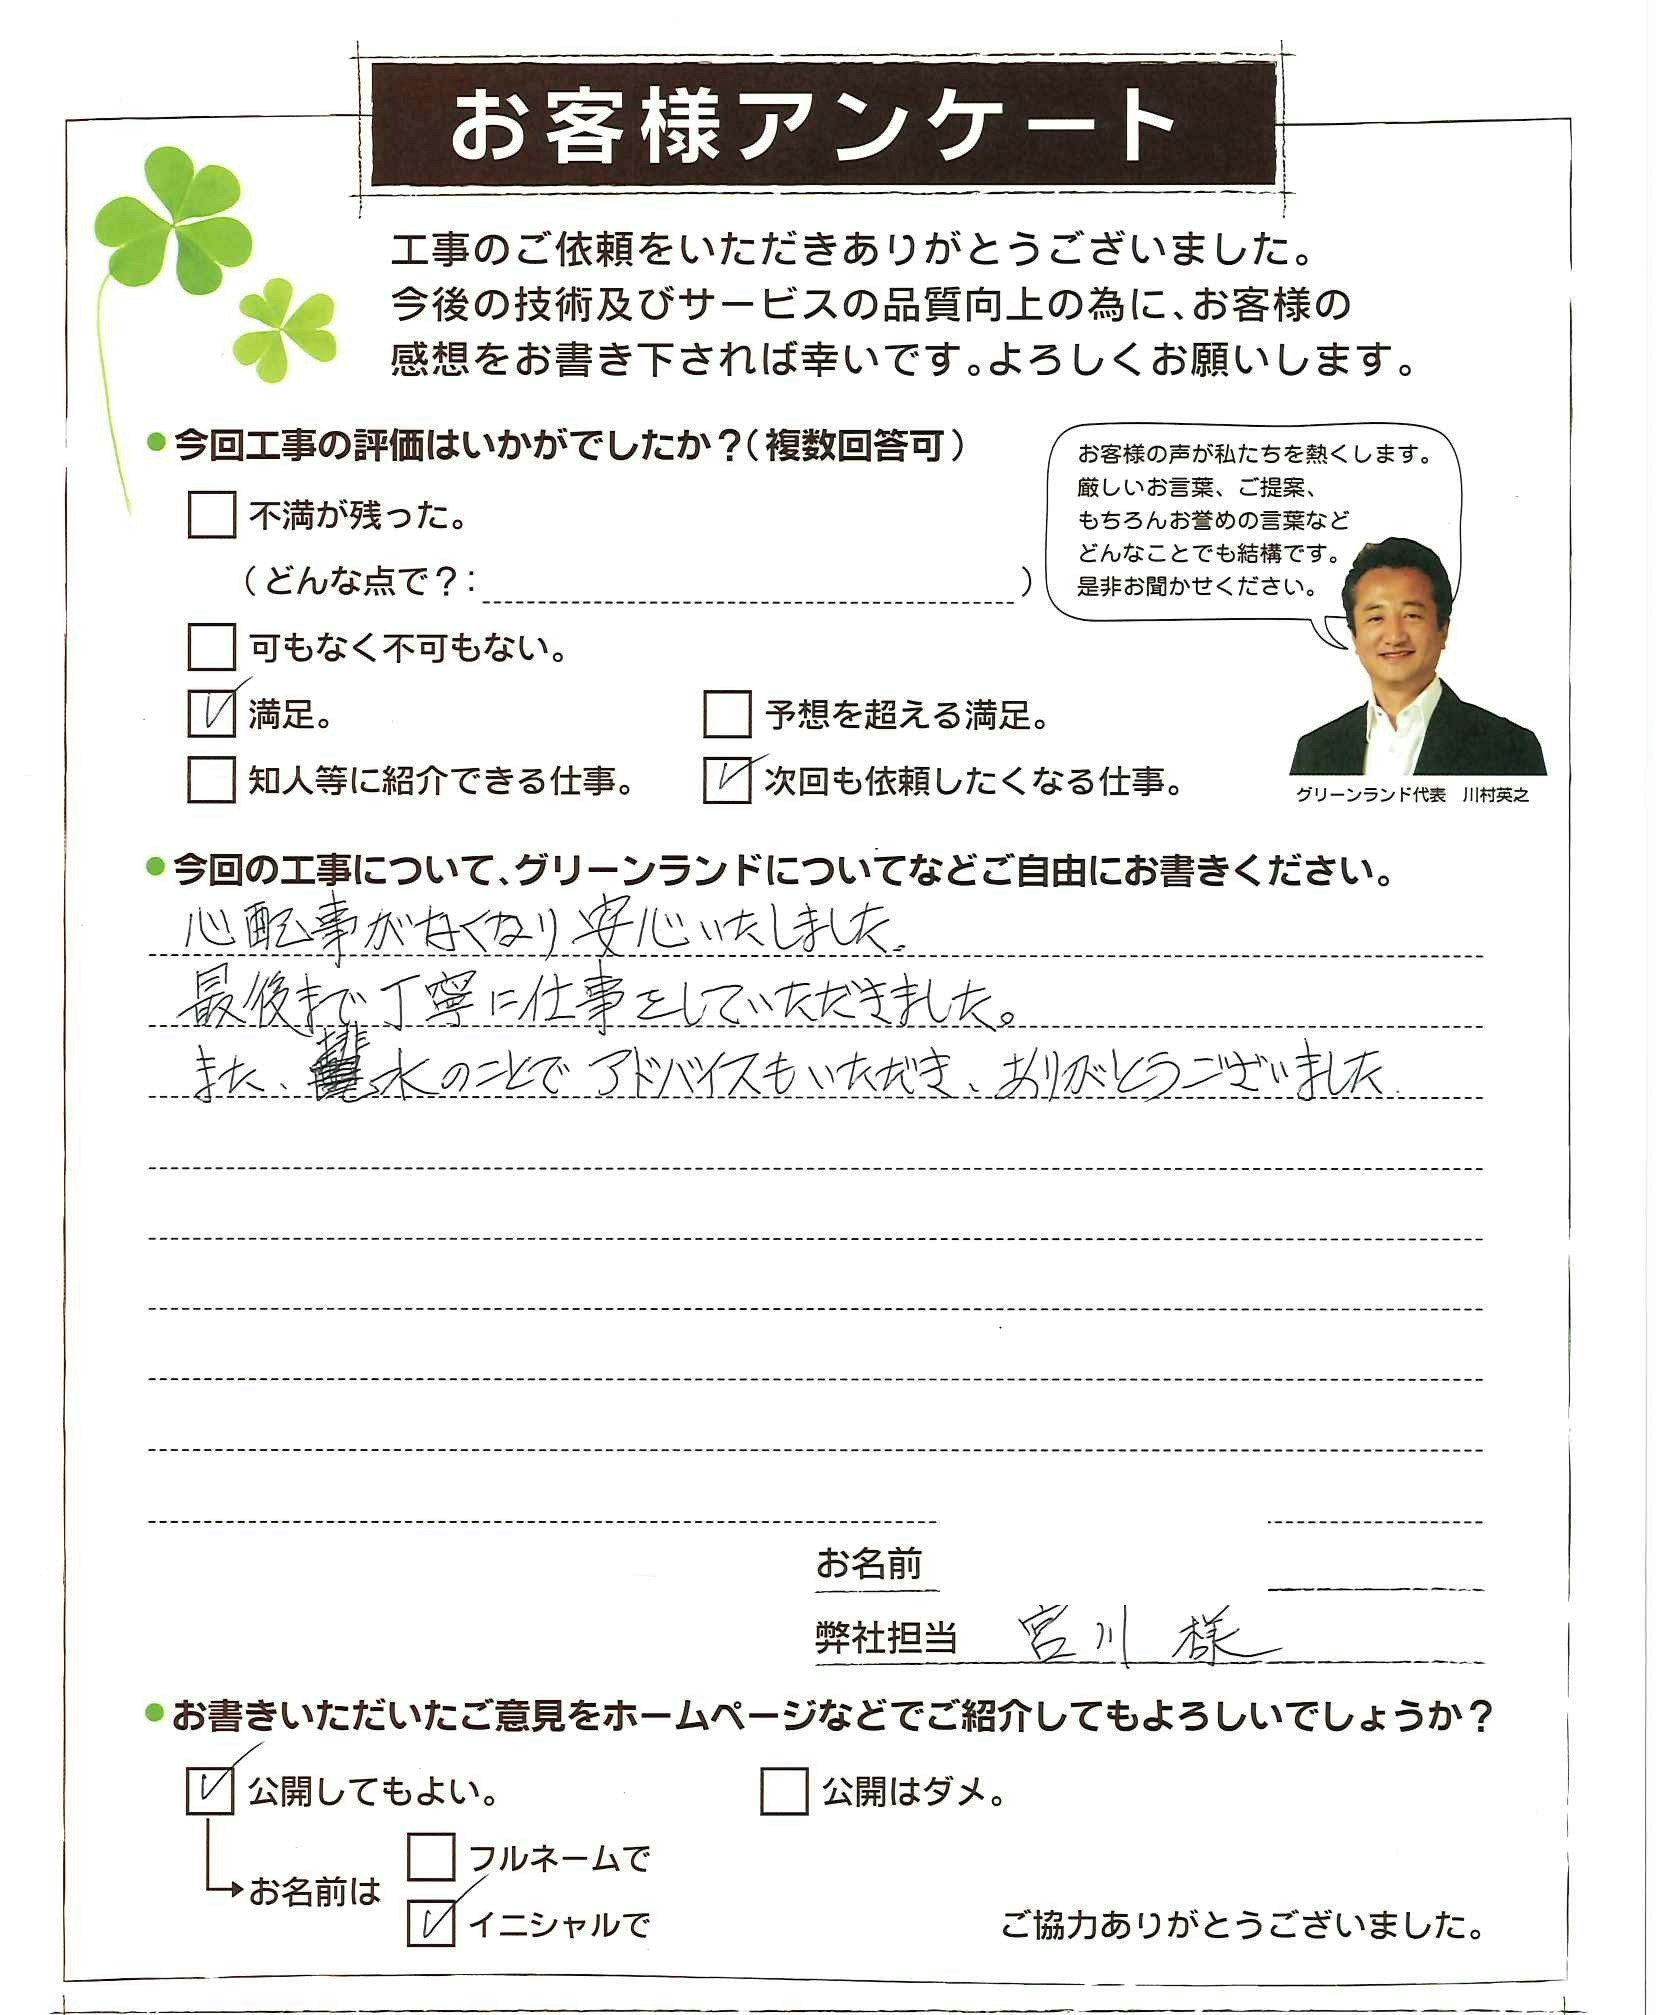 お客様アンケート
工事のご依頼をいただきありがとうございました。
今後の技術及びサービスの品質向上の為に、お客様の
感想をお書き下されば幸いです。よろしくお願いします。
今回工事の評価はいかがでしたか?(複数回答可)
不満が残った。
(どんな点で?: )
可もなく不可もない。
満足。
予想を超える満足。
知人等に紹介できる仕事。
次回も依頼したくなる仕事。
お客様の声が私たちを熱くします。
厳しいお言葉、ご提案、
もちろんお誉めの言葉など
どんなことでも結構です。
是非お聞かせください。
グリーンランド代表 川村英之
今回の工事について、グリーンランドについてなどご自由にお書きください。
心配事がなくなり安心いたしました。
最後まで丁寧に仕事をしていただきました。
また、排水のことでアドバイスもいただき、ありがとうございました.
お名前
弊社担当 宮川 様
お書きいただいたご意見をホームページなどでご紹介してもよろしいでしょうか?
公開してもよい。
公開はダメ。
お名前は
フルネームで
イニシャルで
ご協力ありがとうございました。